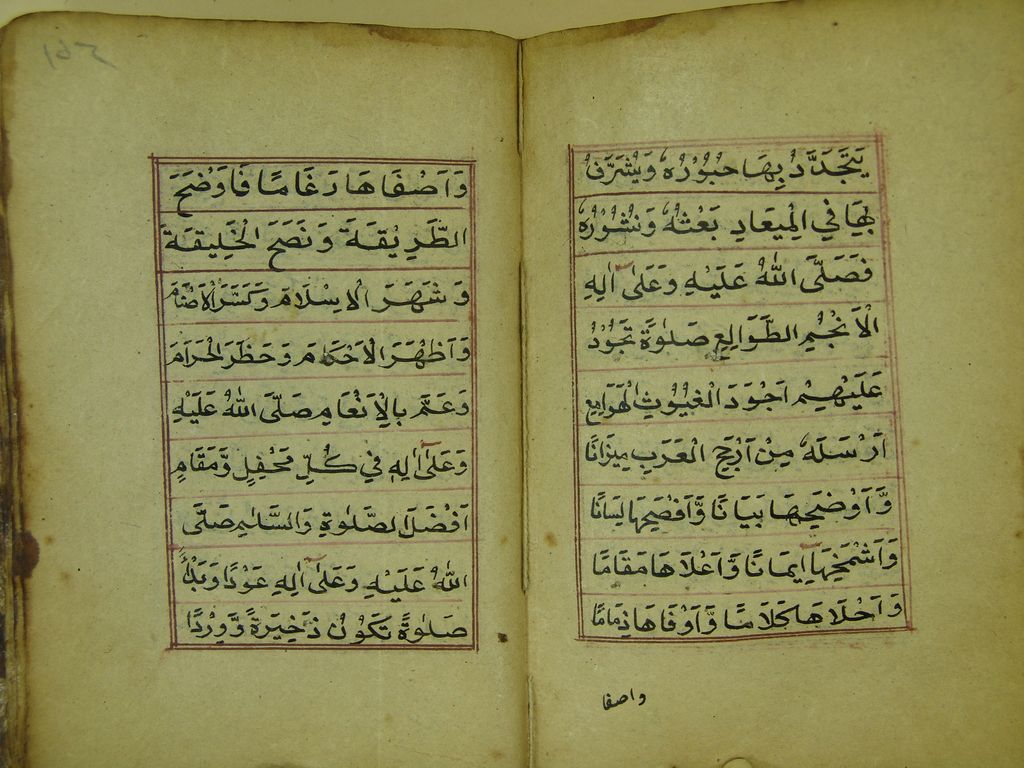 يَتَجَدَّدُ بِهَا حُبُوْرُهٗ وَيُشَرَّفُ
بِهَا فِي الْمِيعَادِ بَعْثُهٗ وَنُشُوْرُهٗ
فَصَلَّى اللّٰهُ عَلَيْهِ وَعَلٰى اٰلِهِ
الْاَنْجُمِ الطَّوَالِعِ صَلٰوةً تَجُوْدُ
عَلَيْهِمْ اَجْوَدَ الْغُيُوْثِ الْهَوَامِعِ
اَرْسَلَهٗ مِنْ اَرْجَحِ الْعَرَبِ مِيْزَانًا
وَّاَوْضَحِهَا بَيَانًا وَّاَفْصَحِهَا لِسَانًا
وَاَشْمَخِهَا اِيْمَانًا وَّاَعْلَاهَا مَقَامًا
وَاَحْلَاهَا كَلَامًا وَّاَوْفَاهَا ذِمَامًا
واصفا
وَاَصْفَاهَا رَغَامًا فَاَوْضَحَ
الطَّرِيْقَةَ وَنَصَحَ الْخَلِيْقَةَ
وَشَهَرَ الْاِسْلَامَ وَكَسَّرَ الْاَصْنَامَ
وَاَظْهَرَ الْاَحْكَامَ وَحَظَرَ الْحَرَامَ
وَعَمَّ بِالْاِنْعَامِ صَلَّى اللّٰهُ عَلَيْهِ
وَعَلٰٓى اٰلِهٖ فِيْ كُلِّ مَحْفِلٍ وَّمَقَامٍ
اَفْضَلَ الصَّلٰوةِ وَالسَّلَامِ صَلَّى
اللّٰهُ عَلَيْهِ وَعَلٰٓى اٰلِهِ عَوْدًا وَبَدْأً
صَلٰوةً تَكُوْنُ ذَخِيْرَةً وَّوِرْدًا